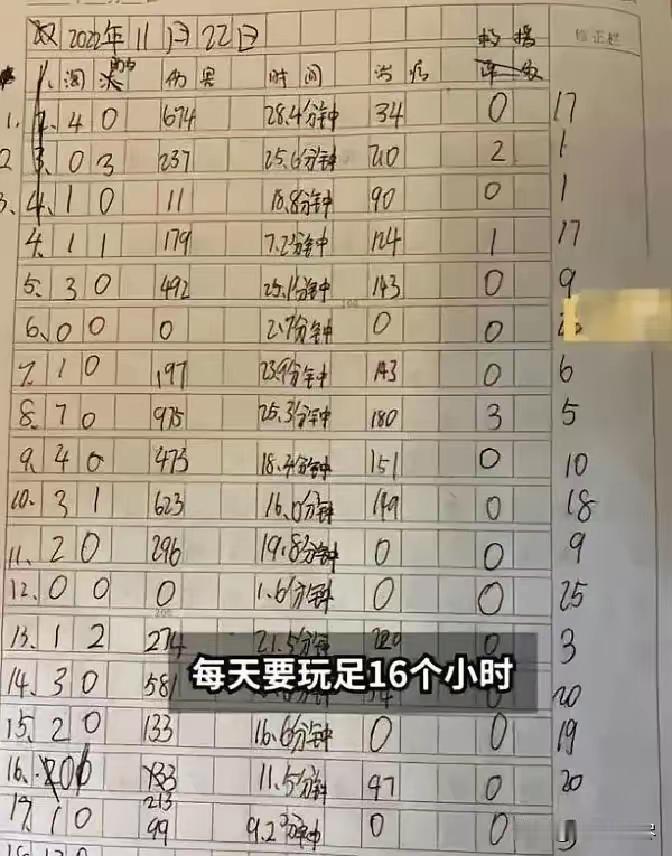 双 2022年11月22日 救援 修正栏
淘汰 助攻 伤害 时间 治疗
1. 4 0 674 28.4分钟 34 0 17
2 3. 0 3 237 25.6分钟 210 2 1
3. 4. 1 0 11 10.8分钟 90 0 1
4. 1 1 179 7.2分钟 124 1 17
5. 3 0 492 25.1分钟 143 0 9
6. 0 0 0 2.7分钟 0 0
7. 1 0 197 23.9分钟 143 0 6
8. 7 0 975 25.3分钟 180 3 5
9. 4 0 473 18.4分钟 151 0 10
10. 3 1 623 16.0分钟 149 0 18
11. 2 0 296 19.8分钟 0 0 9
12. 0 0 0 1.6分钟 0 0 25
13. 1 2 274 21.5分钟 220 0 3
每天要玩足16个小时
14. 3 0 581 20
15. 2 0 133 16.6分钟 0 0 19
16. 11.5分钟 47 0 20
213
17. 1 0 99 9.2分钟 0 0